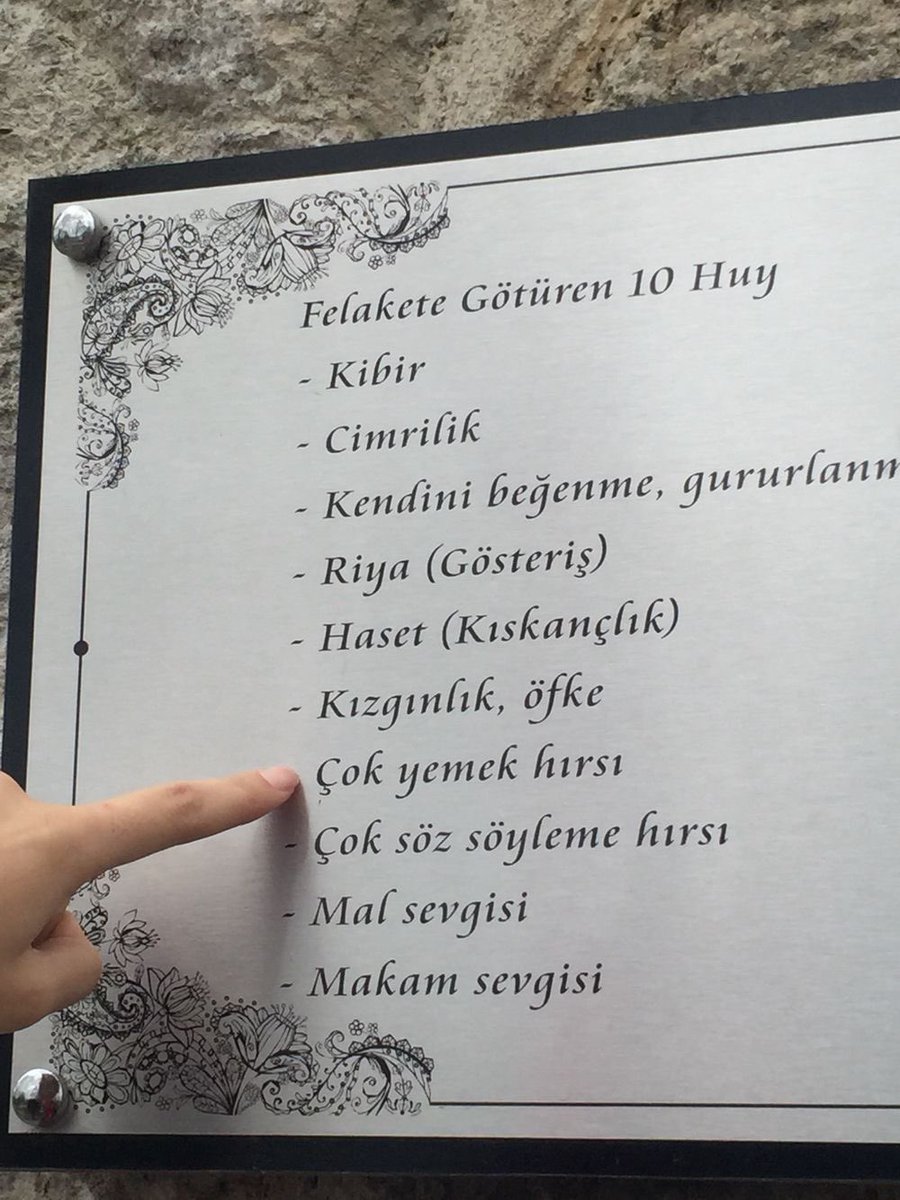 Felakete Götüren 10 Huy
- Kibir
- Cimrilik
- Kendini beğenme,
- Riya (Gösteriş)
- Haset (Kıskançlık)
- Kızgınlık, öfke
Çok yemek hırsı
- Çok söz söyleme hırsı
- Mal sevgisi
- Makam sevgisi